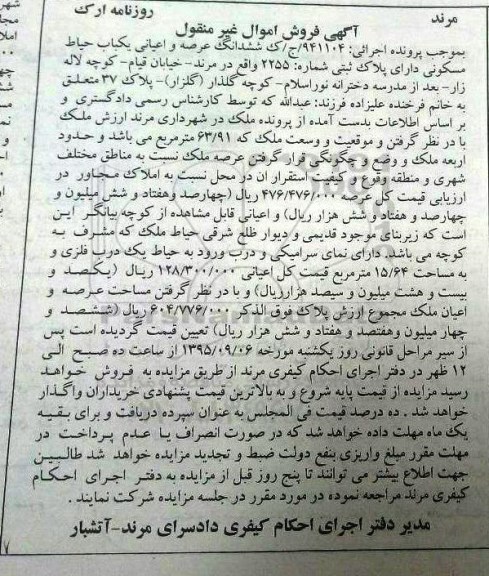 مرند
روزنامه ارک
آگهی فروش اموال غیر منقول
بموجب پرونده اجرائی: ۹۴۱۱۰۴/ج/ک ششدانگ عرصه و اعیانی یکباب حیاط
مسکونی دارای پلاک ثبتی شماره: ۲۲۵۵ واقع در مرند- خیابان قیام- کوچه لاله
زار- بعد از مدرسه دخترانه نوراسلام- کوچه گلذار (گلزار)- پلاک ۳۷ متعلق
به خانم فرخنده علیزاده فرزند: عبداله که توسط کارشناس رسمی دادگستری و
بر اساس اطلاعات بدست آمده از پرونده ملک در شهرداری مرند ارزش ملک
با در نظر گرفتن و موقعیت و وسعت ملک که ۶۳/۹۱ مترمربع می باشد و حدود
اربعه ملک و وضع و چگونگی قرار گرفتن عرصه ملک نسبت به مناطق مختلف
شهری و منطقه وقوع و کیفیت استقرار ان در محل نسبت به املاک مجاور در
ارزیابی قیمت کل عرصه ۴۷۶/۴۷۶/۰۰۰ ریال (چهارصد وهفتاد و شش میلیون و
چهارصد و هفتاد و شش هزار ریال) و اعیانی قابل مشاهده از کوچه بیانگر این
است که زیربنای موجود قدیمی و دیوار ظلم شرقی حیاط ملک که مشرف به
کوچه می باشد. دارای نمای سرامیکی و درب ورود به حیاط یک درب فلزی و
به مساحت ۱۵/۶۴ مترمربع قیمت کل اعیانی ۱۲۸/۳۰۰/۰۰۰ ریال (یکصد و
بیست و هشت میلیون و سیصد هزارریال) و با در نظر گرفتن مساحت عرصه و
اعیان ملک مجموع ارزش پلاک فوق الذکر ۶۰۴/۷۷۶/۰۰۰ ریال (ششصد و
چهار میلیون وهفتصد و هفتاد و شش هزار ریال) تعیین قیمت گردیده است پس
از سیر مراحل قانونی روز یکشنبه مورخه ۱۳۹۵/۰۹/۰۶ از ساعت ده صبح الی
۱۲ ظهر در دفتر اجرای احکام کیفری مرند از طریق مزایده به فروش خواهد
رسید مزایده از قیمت پایه شروع و به بالاترین قیمت پیشنهادی خریداران واگذار
خواهد شد . ده درصد قیمت فی المجلس به عنوان سپرده دریافت و برای بقیه
یک ماه مهلت داده خواهد شد که در صورت انصراف یا عدم پرداخت در
مهلت مقرر مبلغ واریزی بنفع دولت ضبط و تجدید مزایده خواهد شد طالبین
جهت اطلاع بیشتر می توانند تا پنج روز قبل از مزایده به دفتر اجرای احکام
کیفری مرند مراجعه نموده در مورد مقرر در جلسه مزایده شرکت نمایند .
مدیر دفتر اجرای احکام کیفری دادسرای مرند-آتشبار